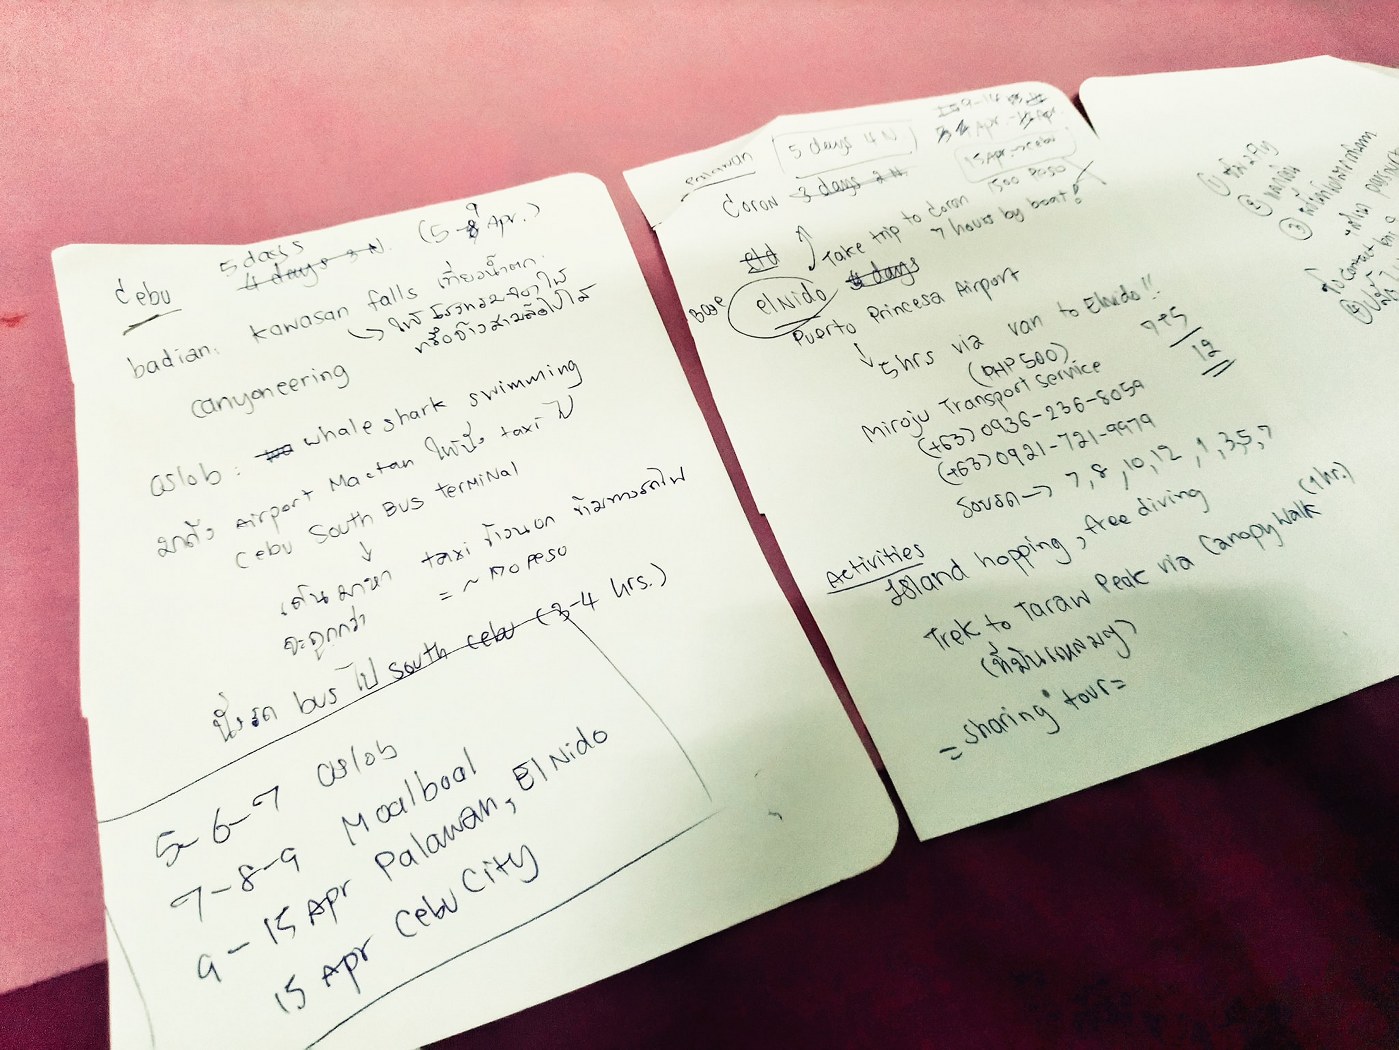 5 days
Cebu 4 days 3 N. (5-8 9 Apr.)
badian: kawasan falls เที่ยวน้ำตก
→ ให้โรงแรม
หรือจ้างสามล้อไปได้
canyoneering
oslob: whale shark swimming
มาถึง Airport Mactan ให้นั่ง taxi ไป
Cebu South Bus terminal
↓
เดินมาหา taxi ข้างนอก ข้ามทางรถไฟ
จะถูกกว่า = ~ 170 Peso
นั่งรถ bus ไป south cebu (3-4 hrs.)
5-6-7 oslob
7-8-9 Moalboal
9-15 Apr Palawan, El Nido
15 Apr Cebu City
Palawan 5 days 4 N
15 Apr → Cebu
Coron 3 days 2 N 1500 Peso
Take trip to Coron
7 hours by boat!
Base El Nido 4 days
Puerto Princesa Airport
↓ 5 hrs via van to Elnido!!
(PHP 500)
7+5
12
Miroju Transport Service
(+63) 0936-236-8059
(+63) 0921-721-9979
รอบรถ → 7, 8, 10, 12, 1, 3, 5, 7
Activities
Island hopping, free diving
Trek to Taraw Peak via Canopy Walk (1 hr.)
(ที่มันแหลมๆ)
= sharing tour =
①
②
③
④